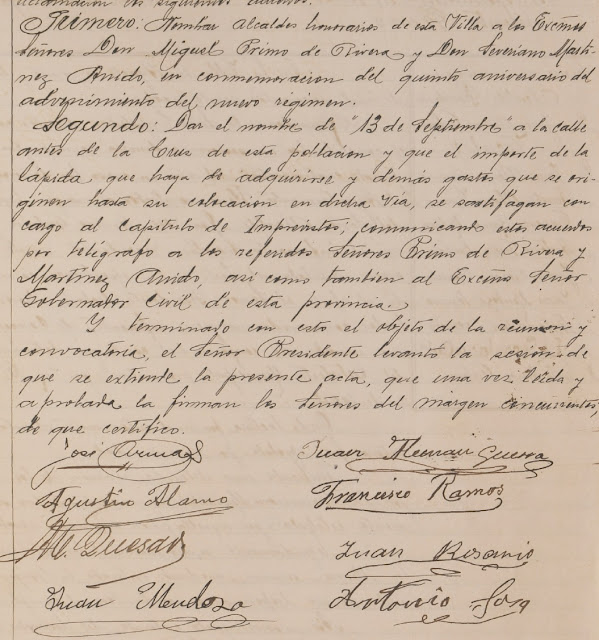 acordaron los siguientes acuerdos.
Primero: Nombrar alcaldes honorarios de esta Villa a los Excmos
Señores Don Miguel Primo de Rivera y Don Severiano Martí-
nez Anido, en conmemoracion del quinto aniversario del
advenimiento del nuevo régimen.
Segundo: Dar el nombre de "13 de Septiembre" a la calle
antes de la Cruz de esta poblacion y que el importe de la
lápida que haya de adquirirse y demás gastos que se ori-
ginen hasta su colocacion en dicha vía, se satisfagan con
cargo al capitulo de Imprevistos; comunicando estos acuerdos
por telégrafo a los referidos Señores Primo de Rivera y
Martínez Anido, asi como tambien al Excmo Señor
Gobernador Civil de esta provincia.
Y terminado con esto el objeto de la reunion y
convocatoria, el Señor Presidente levantó la sesion, de
que se extiende la presente acta, que una vez leida y
aprobada la firman los Señores del margen concurrentes,
de que certifico.
José Armas Juan Alemán Guerra
Agustin Alamo Francisco Ramos
M. Quesada Juan Rosario
Juan Mendoza Antonio Sosa